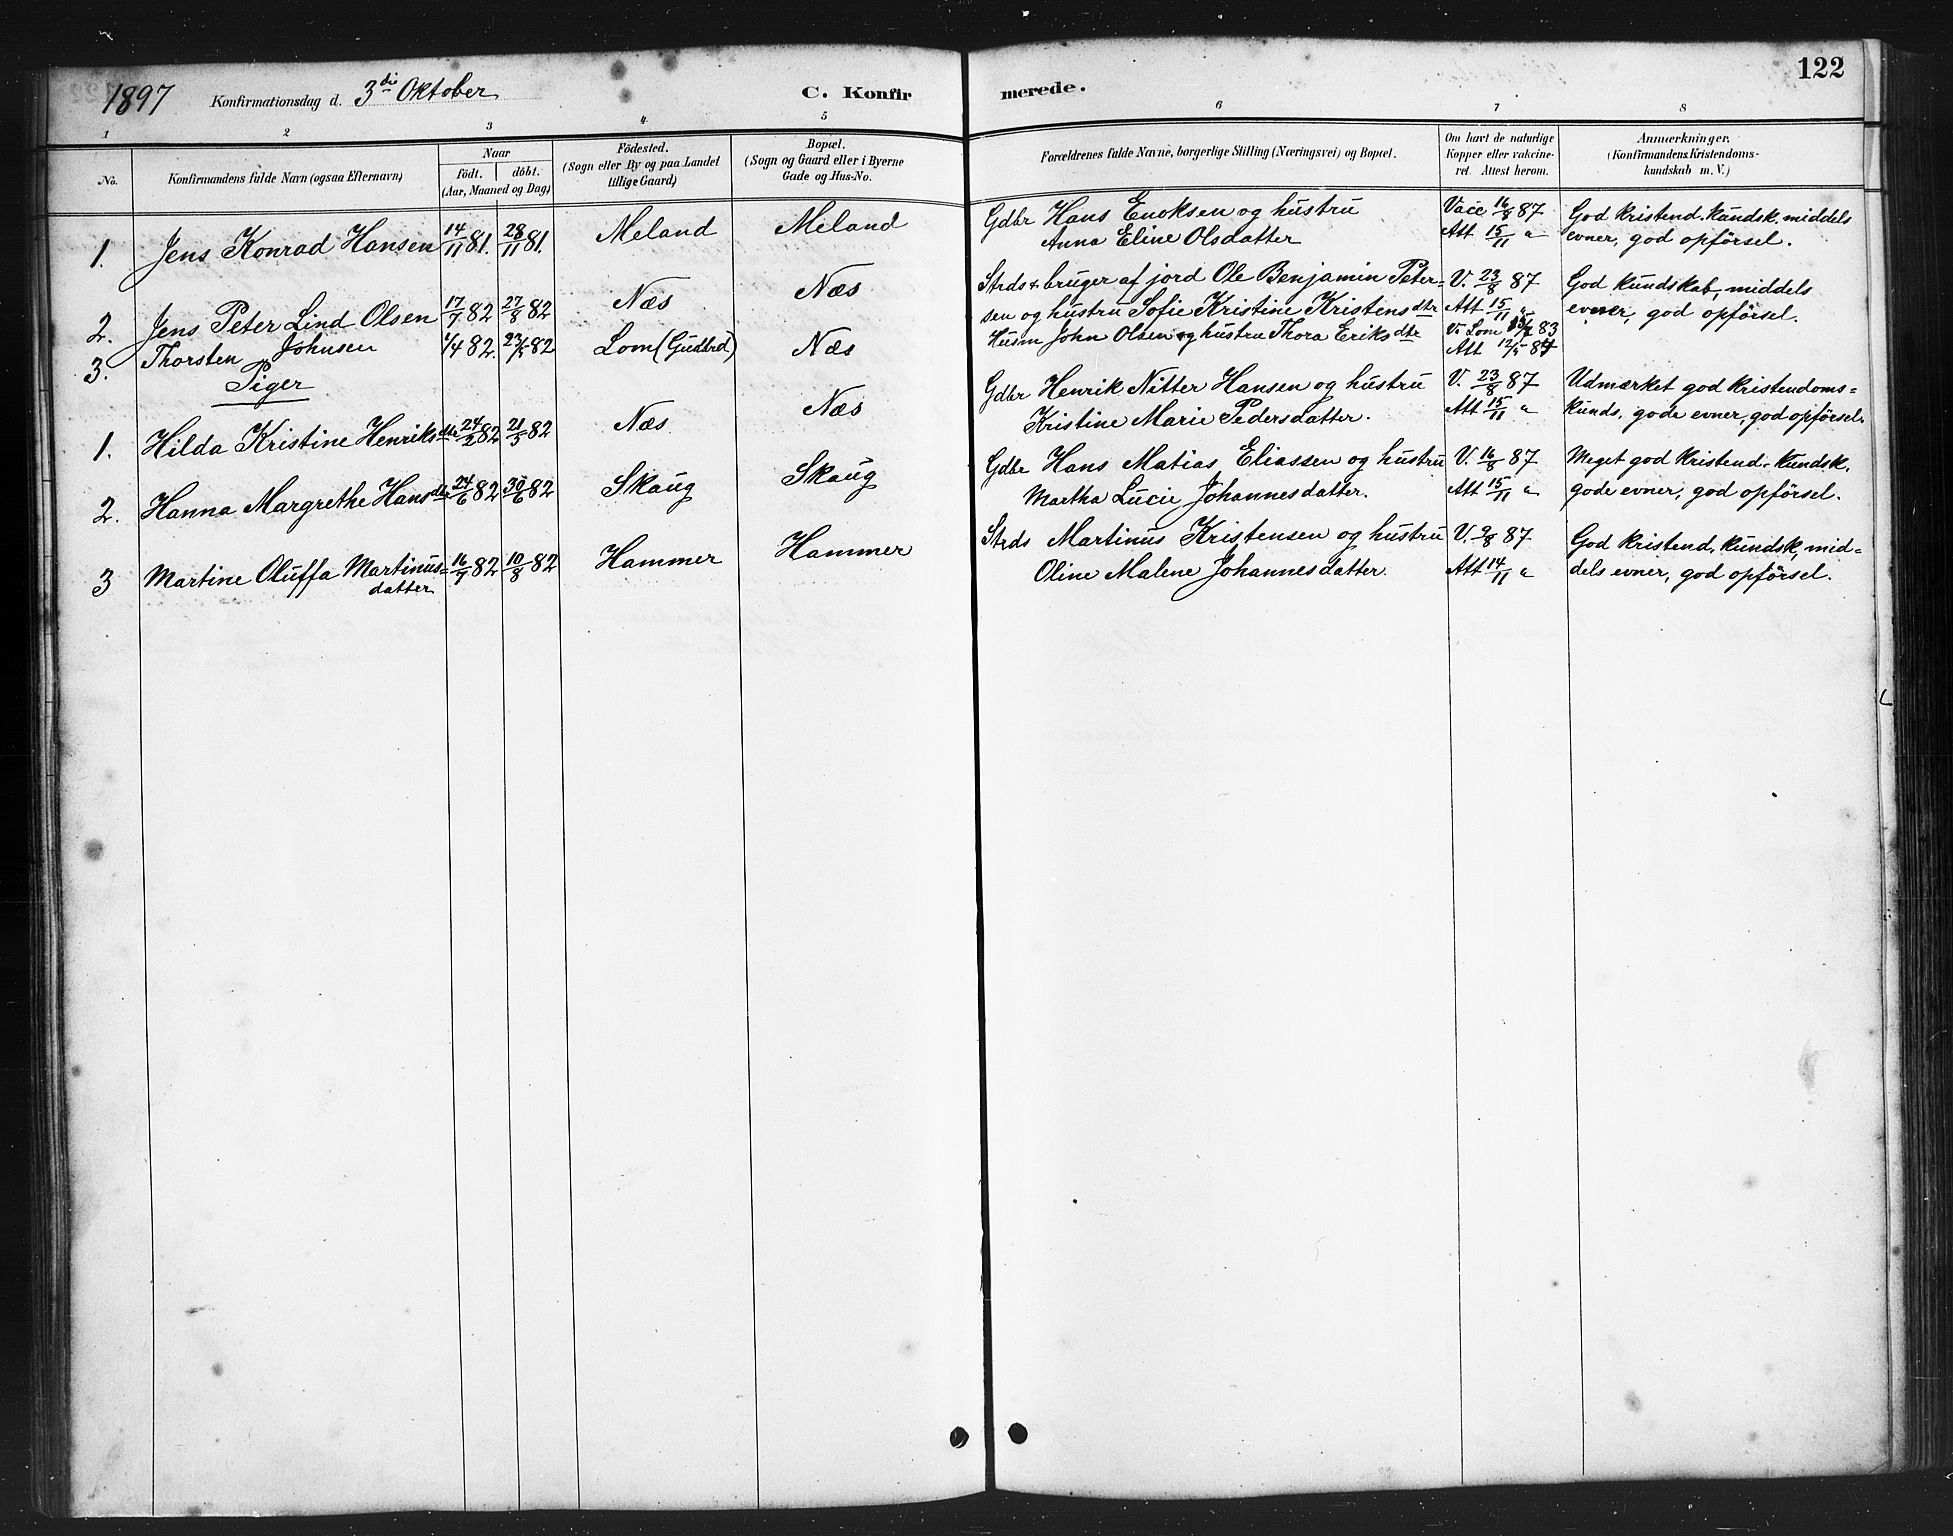 1897 Konfirmationsdag d. 3die Oktober C. Konfirmerede. 122
1 2 3 4 5 6 7 8
No.
Konfirmandens fulde Navn (ogsaa Efternavn)
Naar
födt. döbt.
(Aar, Maaned og Dag)
Födested.
(Sogn eller By og paa Landet
tillige Gaard)
Bopæl.
(Sogn og Gaard eller i Byerne
Gade og Hus-No.
Forældrenes fulde Navne, borgerlige Stilling (Næringsvei) og Bopæl.
Om havt de naturlige
Kopper eller vakcine-
ret. Attest herom.
Anmerkninger,
(Konfirmandens Kristendoms-
kundskab m. V.)
1. Jens Konrad Hansen 14/11 81. 28/11 81. Meland Meland
Gdbr Hans Enoksen og hustru
Anna Eline Olsdatter
Vacc 16/8 87
Att 15/11 "
God kristend. kundsk, middels
evner, god opförsel.
2. Jens Peter Lind Olsen 17/7 82 27/8 82 Næs Næs
Strds & bruger af jord Ole Benjamin Peter-
sen og hustru Sofie Kristine Kristensdtr
V. 23/8 87
Att 15/11 "
God kundskab, middels
evner, god opförsel.
3. Thorsten Johnsen 4/4 82. 82 Lom (Gudbrd) Næs
Husm John Olsen og hustru Thora Eriksdtr
V. Lom 83
Att 12/5
Piger
1. Hilda Kristine Henriksdtr 24/2 82 21/5 82 Næs Næs
Gdbr Henrik Nitter Hansen og hustru
Kristine Marie Pedersdatter.
V. 23/8 87
Att 15/11 "
Udmærket god kristendoms-
kunds, gode evner, god opförsel.
2. Hanna Margrethe Hansdtr 24/6 82 30/6 82 Skaug Skaug
Gdbr Hans Matias Eliassen og hustru
Martha Lucie Johannesdatter.
V. 16/8 87
Att 15/11 "
Meget god kristend. kundsk,
gode evner, god opförsel.
3 Martine Oluffa Martinus-
datter 16/7 82 10/8 82 Hammer Hammer
Strds Martinus Kristensen og hustru
Oline Malene Johannesdatter.
V. 9/8 87
Att 14/11 "
God kristend. kundsk, mid-
dels evner, god opförsel.